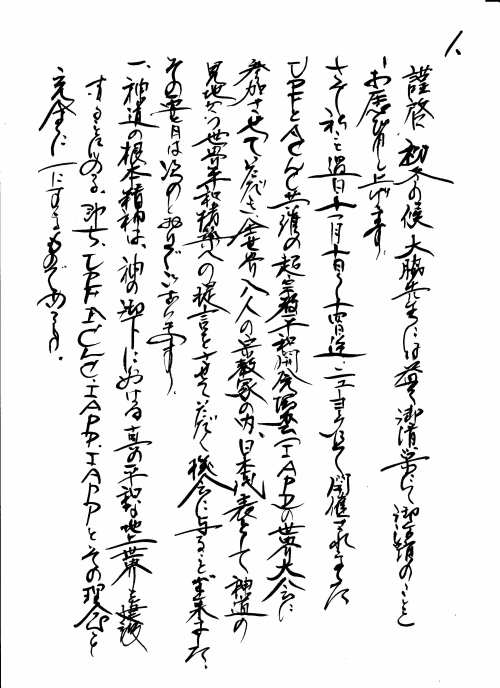 1.
謹啓 初冬の候 大脇先生には益々御清栄にて御活躍のことと
お慶び申し上げます。
さて 私こと過日十一月十日から十四日迄 ニューヨークに於て開催されました
UPFとACLC共催の超宗教平和開発 IAPDの世界大会に
参加させていただき、全世界八人の宗教家の内、日本代表として神道の
見地から世界平和構築への提言をさせていただく機会に与ることが出来ました。
その要旨は次のとおりでございます。
一、神道の根本精神は、神の御下における真の平和な地上世界を建設
するにある。即ち、UPF、ACLC、IAPP、IAPPとその理念を
完全に一にするものである。